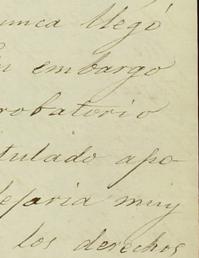 nunca llegó
embargo
robatorio
tulado apo-
muy
los derechos